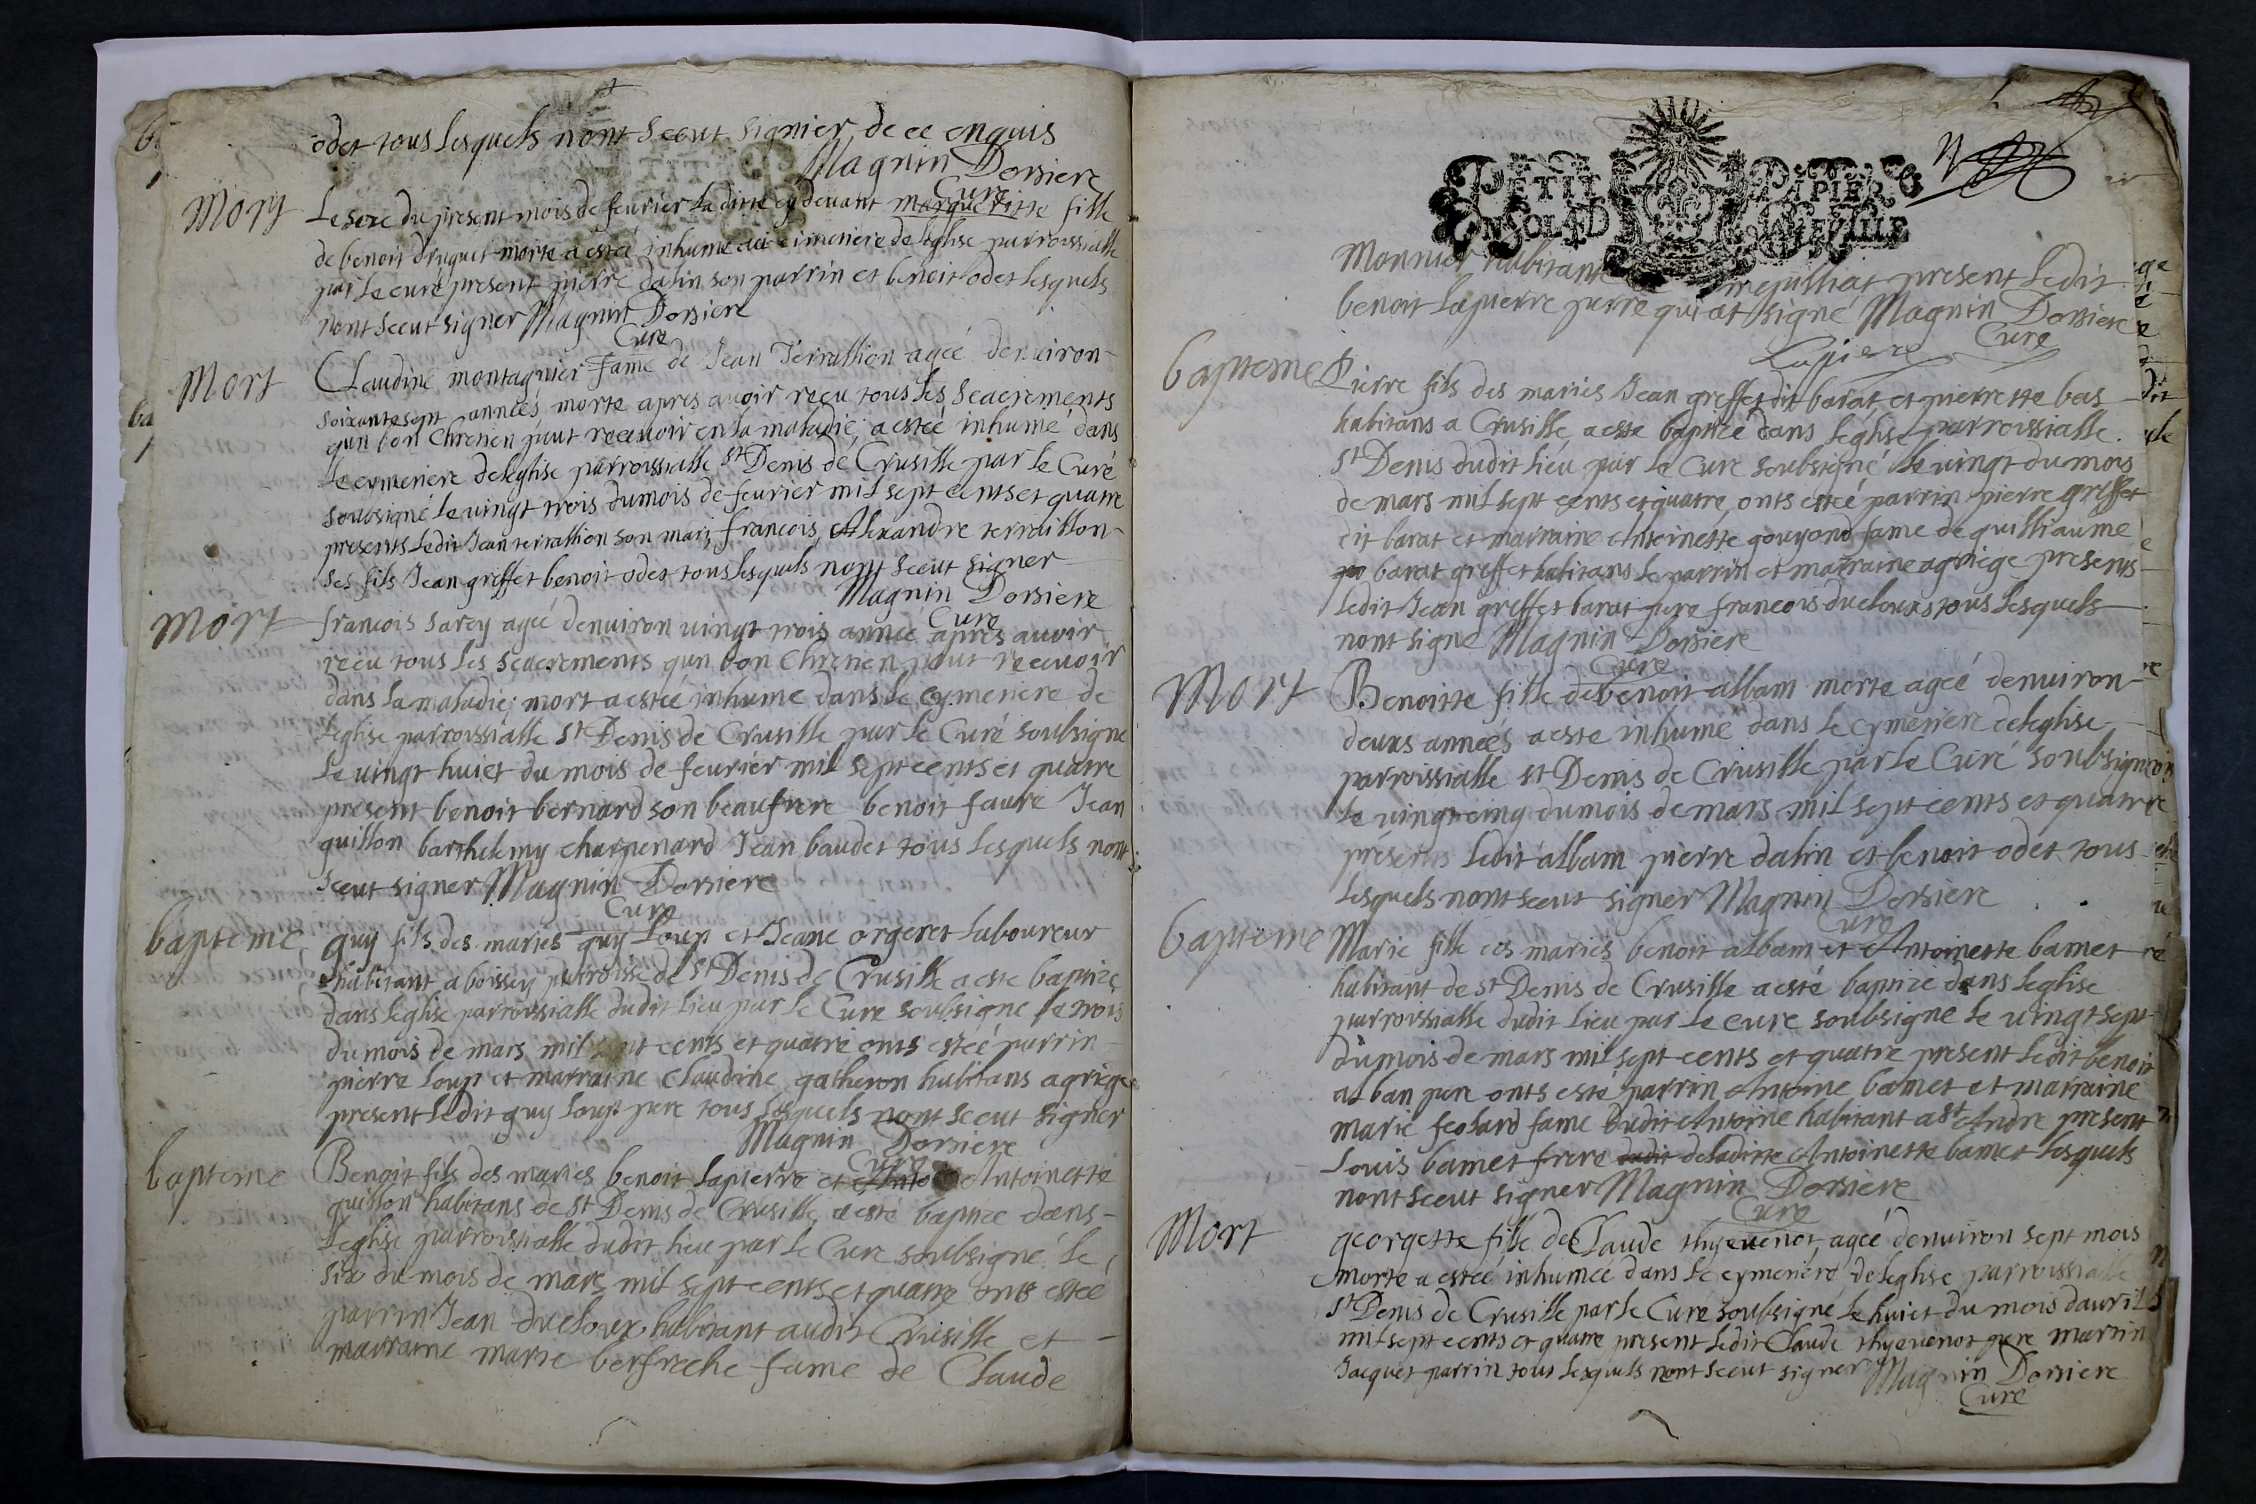 odet tous lesquels nont sceut signier de ce enquis
Magnin Dorsiere
Cure
Mort
Le seze du present mois de feurier la ditte cy deuant marguerite fille
de benoit druguet morte a esteé inhume au cimetiere de leglise parroissialle
par le curé present pierre dalin son parrin et benoit odet lesquels
nont sceut signer Magnin Dorsiere
Cure
Mort
Claudine montagnier fame de Jean Terrallion ageé denuiron
soixantesept anneés morte apres auoir recu tous les seacrements
qun bon Chretien peut receuoir en la maladie, a esteé inhumé dans
le cymetiere deleglise parroissialle St Denis de Crusille par le Curé
soubsigné le vingt trois du mois de feurier mil sept cents et quatre
presents ledit Jean terrallion son mari, francois, Alexandre terraillon
ses fils Jean greffet benoit odet tous lesquels nont sceut signer
Magnin Dorsiere
Cure
Mort
francois sarey ageé denuiron vingt trois anneé apres auoir
recu tous les seacrements qun bon Chretien peut receuoir
dans la maladie; mort a esteé inhume dans le cymetiere de
leglise parroissialle St Denis de Crusille par le Curé soubsigne
le vingt huiet du mois de feurier mil sept cents et quatre
present benoit bernard son beaufrere benoit faure Jean
guillon barthelemy charpenard Jean baudet tous lesquels nont
sceut signer Magnin Dorsiere
Cure
bapteme
guy fils des maries guy Loup et Jeane orgeret laboureur
habitant a boissey parroisse de St Denis de Crusille a este baptize
dans leglise parroissialle dudit lieu par le Cure soubsigne le trois
du mois de mars mil sept cents et quatre onts esteé parrin
pierre loup et marraine Claudine gatheron habitans a griege
present ledit guy loup pere tous lesquels nont sceut signer
Magnin Dorsiere
Cure
bapteme
Benoit fils des maries benoit lapierre et Anto Antoinette
guillon habitans de St Denis de Crusille a esté baptizé dans
leglise parroissialle dudit lieu par le Cure soubsigné le
six du mois de mars mil sept cents et quatre onts esteé
parrin Jean ducloux habitant audit Crusille et
marraine marie berfreche fame de Claude
PETIT PAPIER
Monnier habitant present ledit
benoit lapierre perre qui at signé Magnin Dorsiere
Cure
Lapiere
bapteme
Pierre fils des maries Jean greffet dit barat et pierrette bas
habitans a Crusille a este baptizé dans leglise parroissialle
St Denis dudit lieu par le Cure soubsigné le vingt du mois
de mars mil sept cents et quatre, onts esteé parrin pierre greffet
dit barat et marraine Antoinette gouyond fame de guilliaume
barat greffet habitans le parrin et marraine agriege presens
ledit Jean greffet barat pere francois ducloux tous lesquels
nont signe Magnin Dorsiere
Cure
Mort
Benoitte fille de benoit albam morte ageé denuiron
deuxs anneés a este inhumé dans le cymetiere deleglise
parroissialle St Denis de Crusille par le Curé soubsigne
le vingtcinq du mois de mars mil sept cents et quatre
présents ledit albam pierre dalin et benoit odet tous
lesquels nont sceut signer Magnin Dorsiere
Cure
bapteme
Marie fille des mariés benoit albam et Antoinette bamet
habitant de St Denis de Crusille a esté baptizé dans leglise
parroissialle dudit lieu par le cure soubsigne le vingtsept
du mois de mars mil sept cents et quatre present ledit benoit
alban pere onts esté parrin Antoine bamet et marraine
marie feolard fame dudit Antoine habitant a St Andre present
Louis bamet frere dudit deladitte Antoinette bamet lesquels
nont sceut signer Magnin Dorsiere
Cure
Mort
georgette fille de Claude thyeuenot, ageé denuiron sept mois
morte a esteé inhumeé dans le cymetiere deleglise parroissialle
St Denis de Crusille par le Curé soubsigné le huiet du mois dauril
mil sept cents et quatre present ledit Claude thyeuenot pere martin
Jacquet parrin tous lesquels nont sceut signer Magnin Dorsiere
Cure